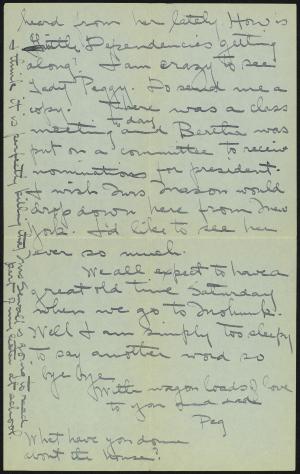 heard from her lately. How is
"Little Dependencies" getting
along? I am crazy to see
Lady Peggy. Do send me a
copy. There was a class
meeting today and Bertha was
put on a committee to receive
nominations for president.
I wish Mrs Mason would
drop down here from New
York. I'd like to see her
ever so much.
We all expect to have a
great old time Saturday
when we go to Mohunk.
Well I am simply too sleepy
to say another word so
bye bye
With wagon loads of love
to you and
Peg
What have you done
about the house?
I think it is perfectly killing that Mrs
is going to read
part of my letter at school